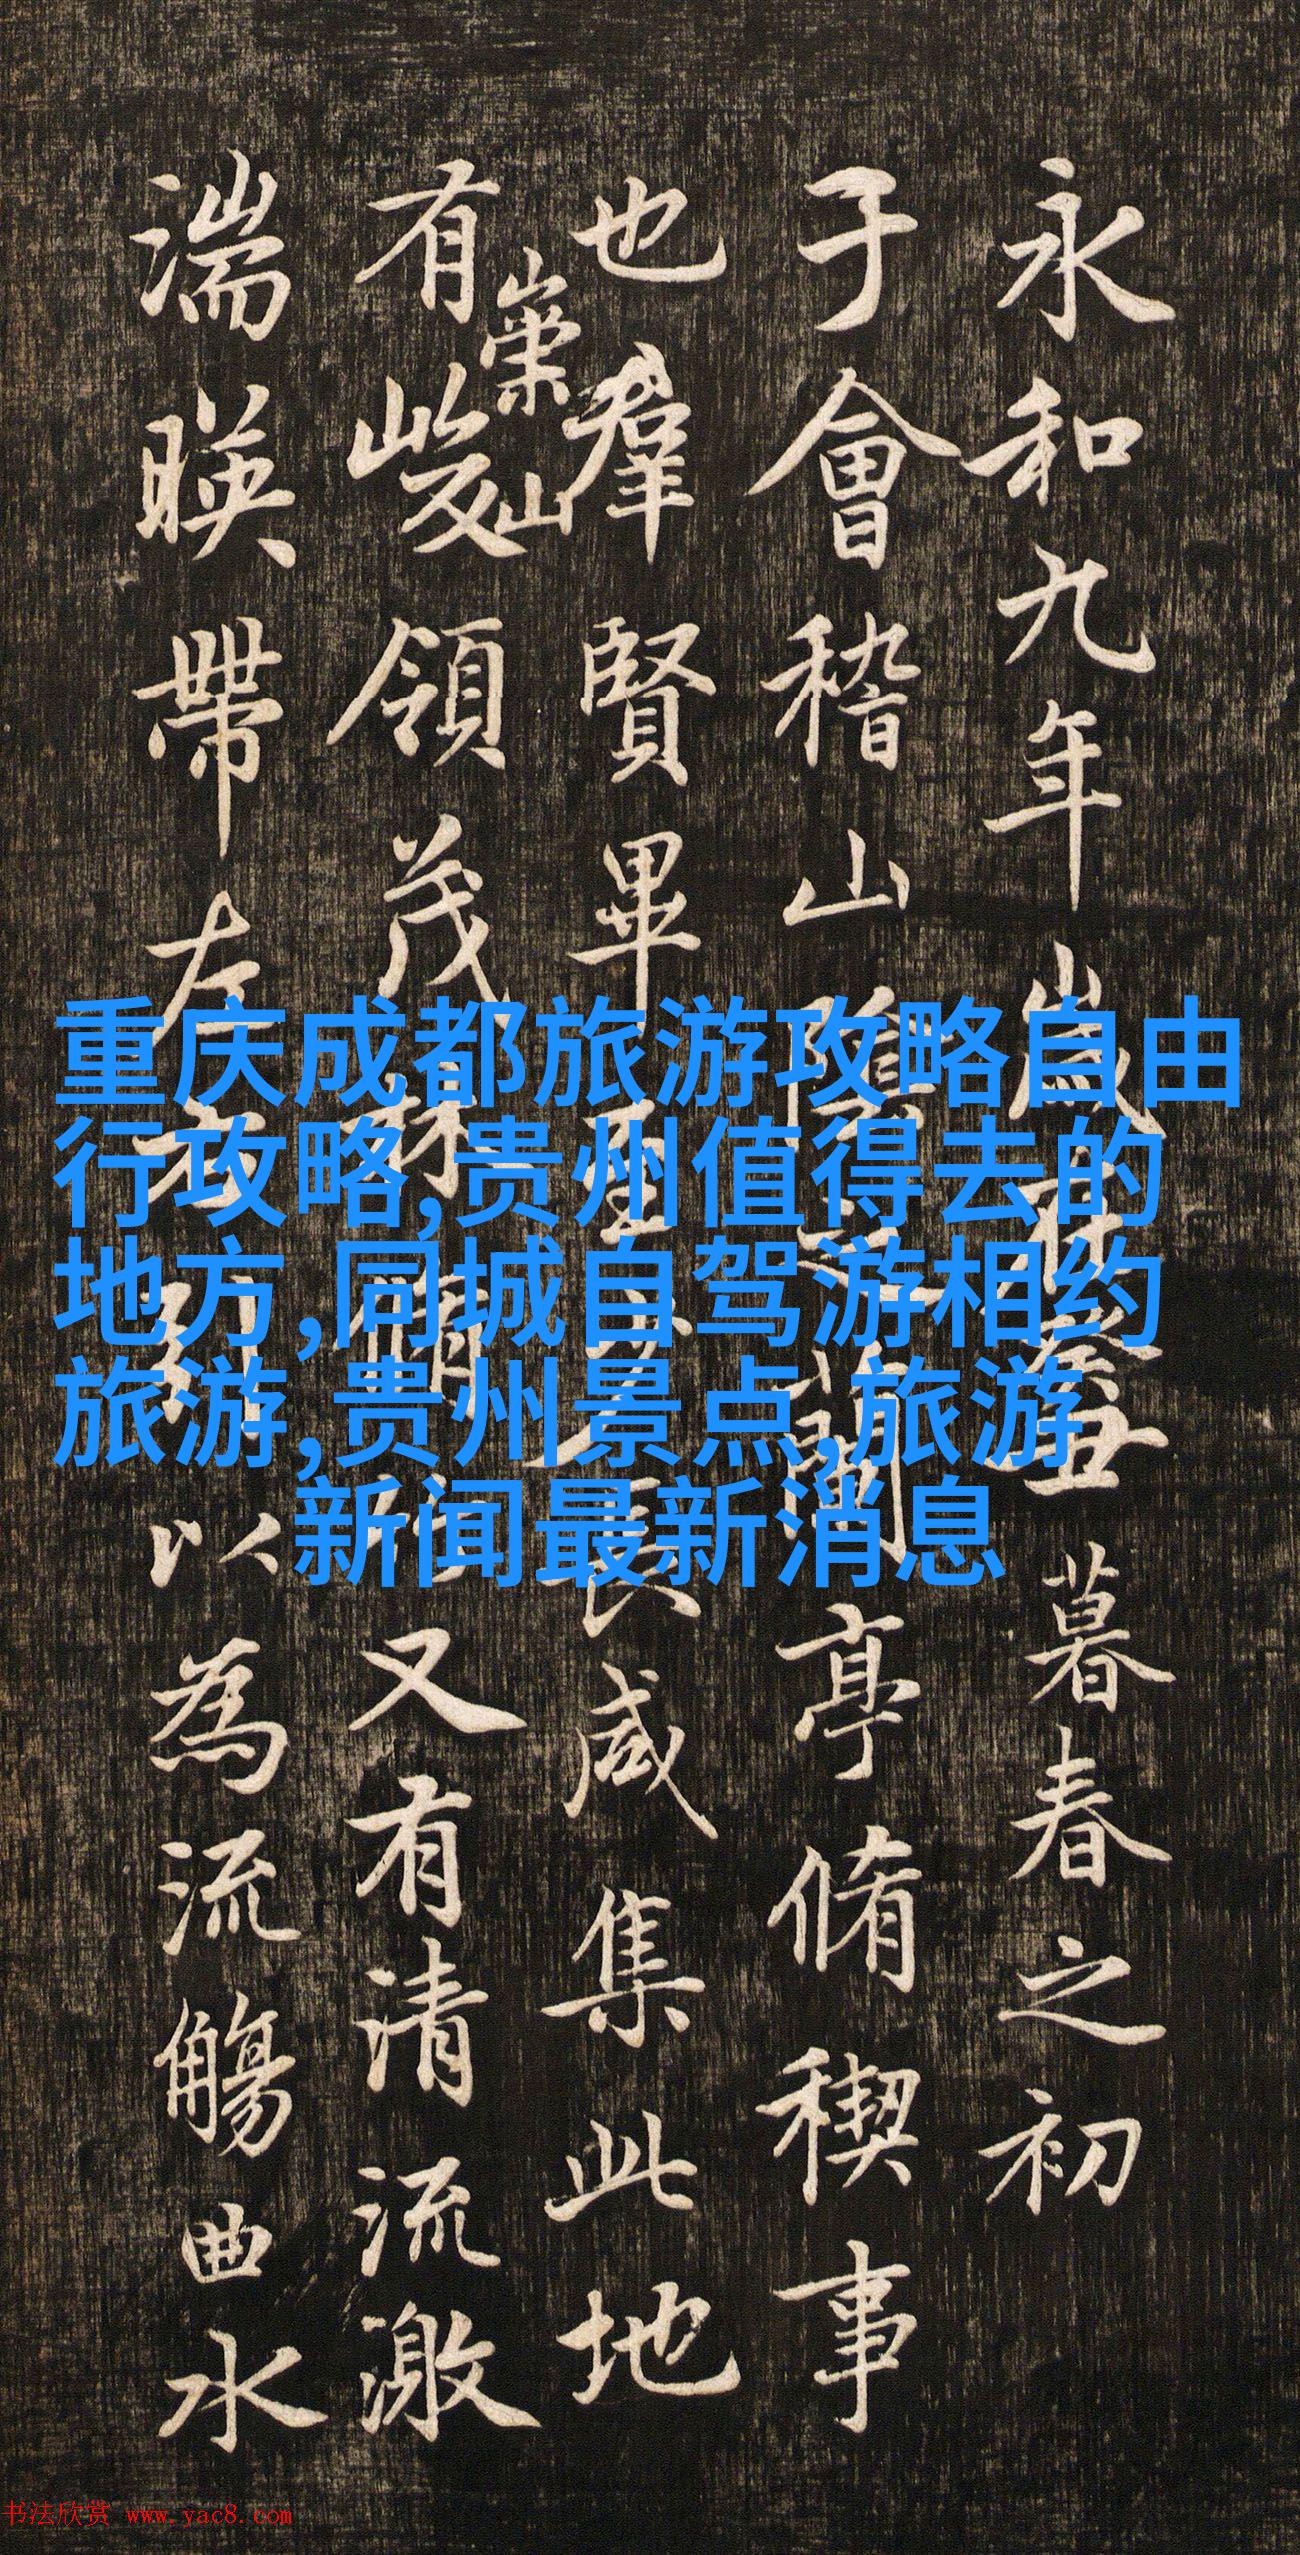 永和九年歲在癸丑暮春之初
于會稽山陰之蘭亭脩稧事
也羣賢畢至少長咸集此地
有崇山峻領茂林脩竹又有清流激
湍暎帶左右引以為流觴曲水
重庆成都旅游攻略自由
行攻略,贵州值得去的
地方,同城自驾游相约
旅游,贵州景点,旅游
新闻最新消息
书法欣赏 www.yac8.com